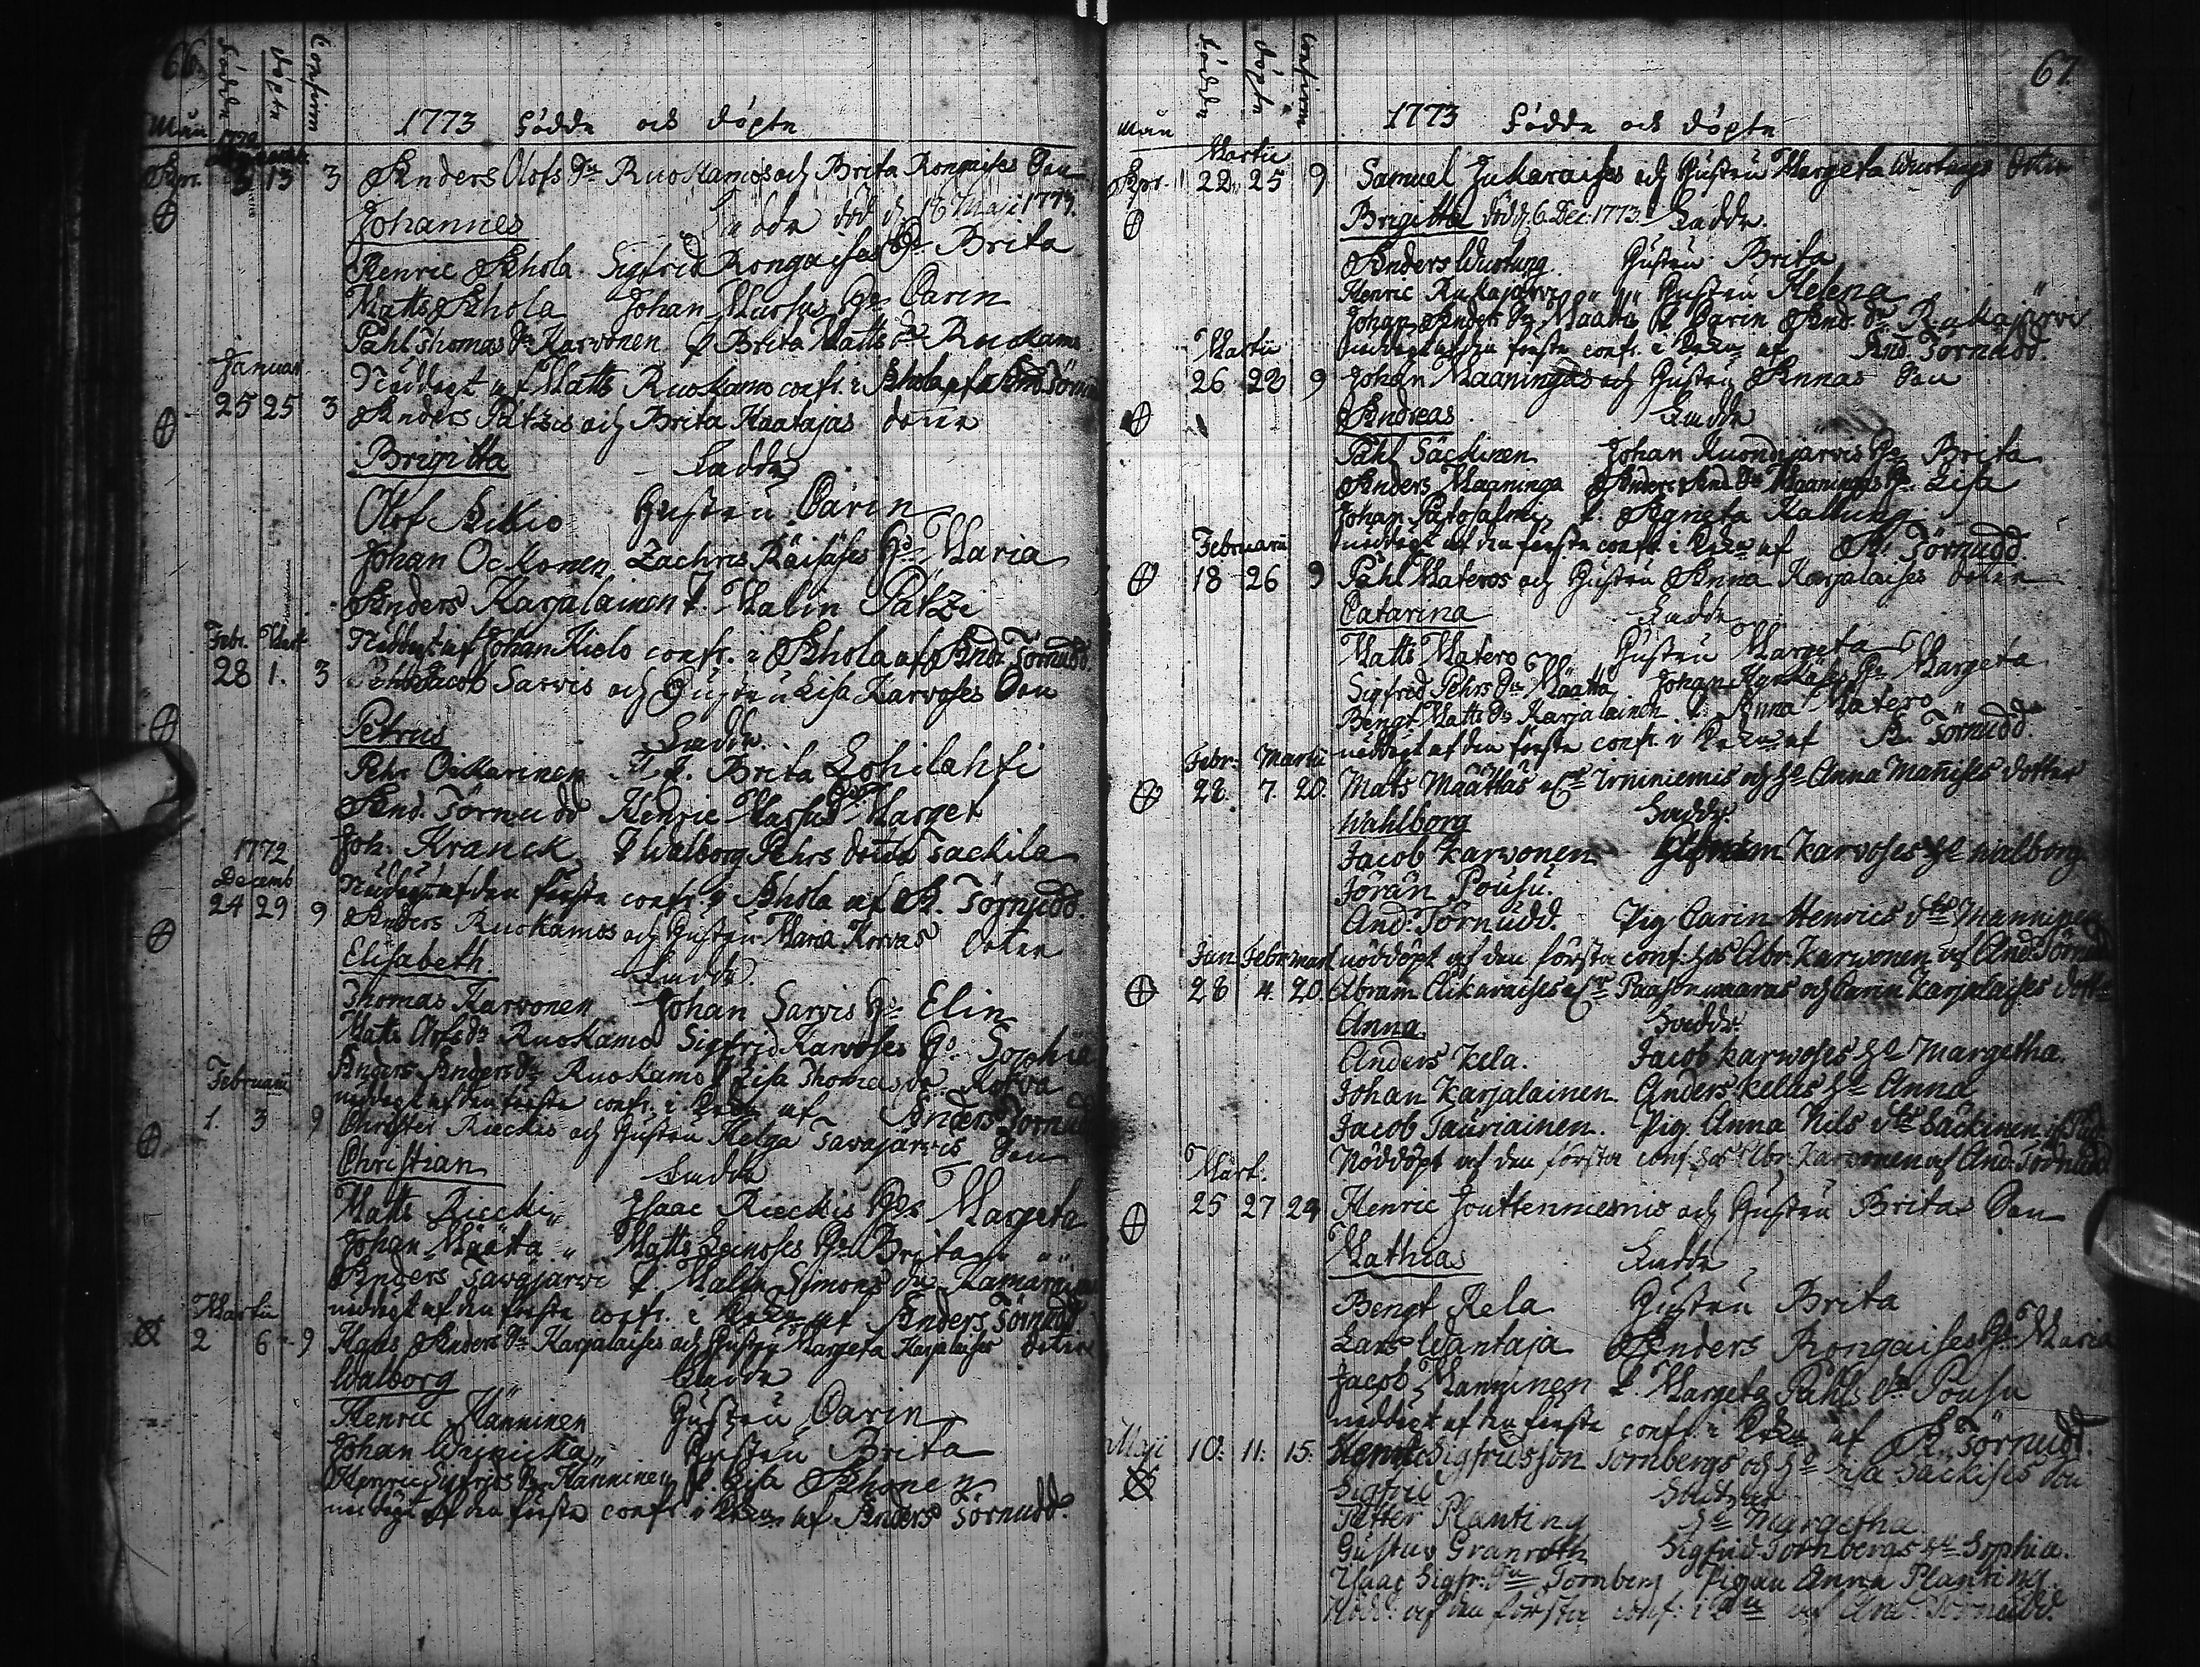 66.
födde
döpte
Confirm
Mån
1773 födde och döpte
Apr. 13 3 Anders Olofs Sn Ruokamos och Brita Rongaises Son
Johannes Faddr död d. 18 Maji 1773.
Henric Ahola Sigfrid Rongaises Hu Brita
Matts Ahola Johan Marsus Hu Carin
Påhl Thomas Sn Karvonen P Brita Matts dr Ruokamo
Januar
Nöddöpt af Matts Ruokamo conf. i Ahola af And. Törnudd
25 25 3 Anders Patzis och Brita Kaatajas doter
Brigitta Faddr
Olof Aikio Hustru Carin
Johan Ockonen Zachris Räisäses Hu Maria
Anders Karjalainen P. Malin Patzi
Febr. Mart.
Nöddöpt af Johan Kielo conf. i Ahola af And. Törnudd.
28 1. 3 Jacob Sarvis och Hustru Lisa Karvoses Son
Petrus Faddr.
Pehr Oickarinen P. Brita Lohilahti
And. Törnudd Henric Marsus Marget
Joh. Kranck P Walborg Pehrs doter Tackila
1772
Decemb
Nöddöpt af den förste conf. i Ahola af A. Törnudd.
24 29 9 Anders Ruokamos och Hustru Maria Korvas doter
Elisabeth Faddr.
Thomas Karvonen Johan Sarvis Hu Elin
Matts Olofs Sn Ruokamo Sigfrid Karvoses Hu Sophia
Anders Anders Sn Ruokamo P Lisa Thomas dr Korva
Februarii
nöddöpt af den förste conf. i af Anders Törnudd
1. 3 9 Christer Rieckis och Hustru Helga Tavajärvis Son
Christian Faddr
Matts Riecki Isaac Rieckis Hu Margeta
Johan Määttä Matts Leinoses Hu Brita
Anders Tavajärvi P. Malin Simons dr
nöddöpt af den förste conf. i af Anders Törnudd
Martii
2 6 9 Hans Anders Sn Karjalaises och Hustru Margeta Karjalaises doter
Walborg Faddr
Henric Hänninen Hustru Carin
Johan Hustru Brita
Henric Sigfrids Sn Hänninen P. Lisa Ahonen
nöddöpt af den förste conf. i af Anders Törnudd.
67
födde
döpte
Confirm
Mån
1773 födde och döpte
Martii
Apr. 22 25 9 Samuel Jukaraises och Hustru Margeta Wuotungs doter
Brigitta död d. 6 Dec. 1773. Faddr
Anders Wuotung Hustru Brita
Henric Rukajärvi Hustru Helena
Johan Anders Sn Määttä P Carin And. dr Rukajärvi
Martii
nöddöpt af den förste conf. i af And. Törnudd.
26 28 9 Johan Maaningas och Hustru Annas Son
Andreas Faddr
Påhl Säckinen Johan Kuondijärvis Hu Brita
Anders Maaninga Anders And. Sn Maaningas Hu Lisa
Johan P. Agneta Kallung
Februarii
nöddöpt af den förste conf. i af A. Törnudd.
18 26 9 Påhl Materos och Hustru Anna Karjalaises doter
Catarina Faddr
Matts Matero Hustru Margeta
Sigfrid Pehrs Sn Määttä Johan Hu Margeta
Bengt Matts Sn Karjalainen P. Anna Matero
Febr: Martii
nöddöpt af den förste conf. i af A. Törnudd.
28. 7. 20. Mats Määttäs Irniniemis och Hu Anna Manises dotter
Wahlborg Faddr.
Jacob Karvonen Karvoses Hu Walborg
Jöran Pousu.
And: Törnudd. Pig Carin Henrics dtr Manninen
Jan. Febr. mart
nöddöpt af den första conf. hos Abr. Karwonen af And: Törnudd
28 4. 20. Abram Aikaraises och Carin Karjalaises dotter
Anna Faddr.
Anders Kela. Jacob Karwoses Hu Margetha.
Johan Karjalainen. Anders Kelas Hu Anna
Jacob Tauriainen. Pig. Anna Nils dtr Säckinen
Nöddöpt af den första conf. hos Abr. Karwonen af And: Törnudd
Mart.
25 27 24 Henric Jouttenniemis och Hustru Britas Son
Mathias Faddr
Bengt Kela Hustru Brita
Lars Wantaja Anders Rongaises Hu Maria
Jacob Manninen P Margeta Påhls dr Pousu
nöddöpt af den förste conf. i af A. Törnudd.
Maji 10. 11. 15. Henric Sigfridsson Tornbergs och Hu Lisa Säckises son
Sigfrid
Petter Planting Hu Margetha.
Gustav Granroth Sigfrid Tornbergs Hu Sophia.
Isaac Sigfr. Sn Tornberg Pigan Anna Planting.
Nödd: af den första conf: i af And: Törnudd.